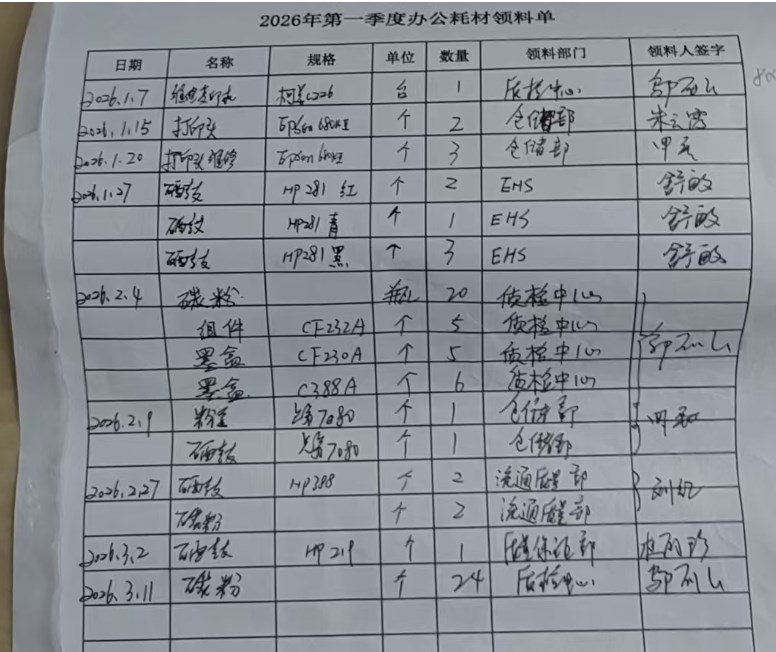 2026年第一季度办公耗材领料单
日期 名称 规格 单位 数量 领料部门 领料人签字
2026.1.7 柯美C226 台 1 质检中心
2026.1.15 打印头 Epson 680KII 个 2 仓储部
2026.1.20 打印头维修 Epson 680KII 个 3 仓储部
2026.1.27 硒鼓 HP281 红 个 2 EHS 舒敏
硒鼓 HP281 青 个 1 EHS 舒敏
硒鼓 HP281 黑 个 3 EHS 舒敏
2026.2.4 碳粉 瓶 20 质检中心
组件 CF232A 个 5 质检中心
墨盒 CF230A 个 5 质检中心
墨盒 C388A 个 6 质检中心
2026.2.9 粉盒 7080 个 1 仓储部
硒鼓 7080 个 1 仓储部
2026.2.27 硒鼓 HP388 个 2 流通质量部
碳粉 个 2 流通质量部
2026.3.2 硒鼓 HP219 个 1 质量保证部
2026.3.11 碳粉 个 24 质检中心